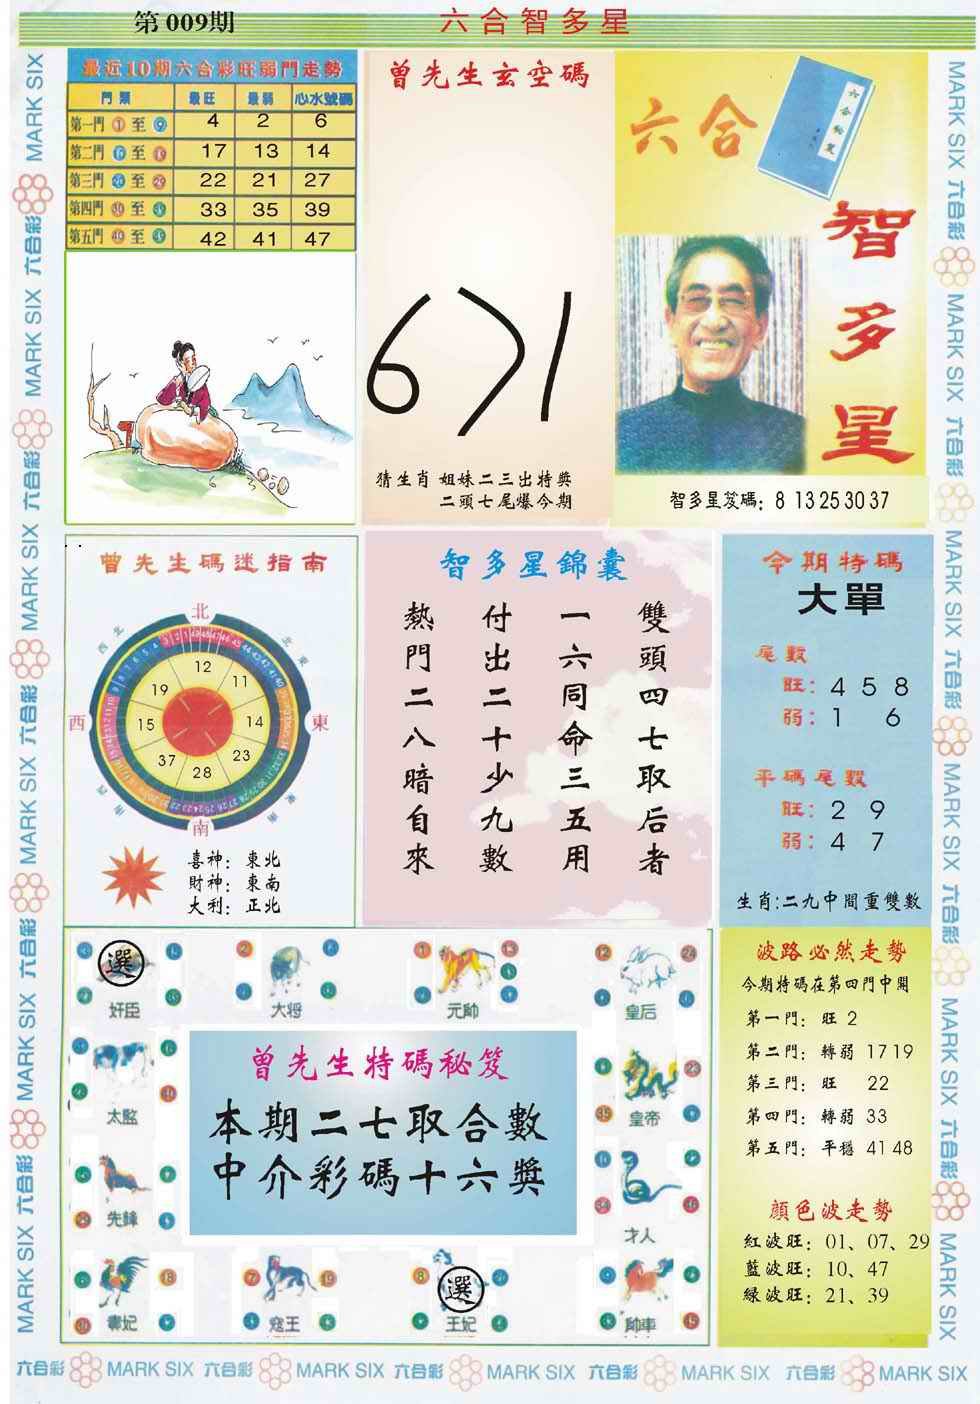 第 009期
六合智多星
最近10期六合彩旺弱門走勢
門類 最旺 最弱 心水號碼
第一門 ① 至 ⑨ 4 2 6
第二門 至 17 13 14
第三門 至 22 21 27
第四門 至 33 35 39
第五門 至 42 41 47
曾先生玄空碼
猜生肖 姐妹二三出特獎
二頭七尾爆今期
六合
智多星
六合秘笈
智多星笈碼: 8 13 25 30 37
曾先生碼迷指南
北
東
南
西
12
11
14
23
28
37
15
19
喜神: 東北
財神: 東南
大利: 正北
智多星錦囊
雙頭四七取后者
一六同命三五用
付出二十少九數
熱門二八暗自來
今期特碼
大單
尾數
旺: 4 5 8
弱: 1 6
平碼尾數
旺: 2 9
弱: 4 7
生肖:二九中間重雙數
選
奸臣
大将
元帥
皇后
太監
皇帝
先鋒
才人
妻妃
寇王
選
王妃
帥車
曾先生特碼秘笈
本期二七取合數
中介彩碼十六獎
波路必然走勢
今期特碼在第四門中開
第一門: 旺 2
第二門: 轉弱 17 19
第三門: 旺 22
第四門: 轉弱 33
第五門: 平穩 41 48
顏色波走勢
紅波旺: 01、07、29
藍波旺: 10、47
綠波旺: 21、39
MARK SIX 六合彩 MARK SIX 六合彩 MARK SIX 六合彩 MARK SIX 六合彩 MARK SIX 六合彩 MARK SIX
MARK SIX 六合彩 MARK SIX 六合彩 MARK SIX 六合彩 MARK SIX 六合彩 MARK SIX 六合彩 MARK SIX
六合彩 MARK SIX 六合彩 MARK SIX 六合彩 MARK SIX 六合彩 MARK SIX 六合彩 MARK SIX